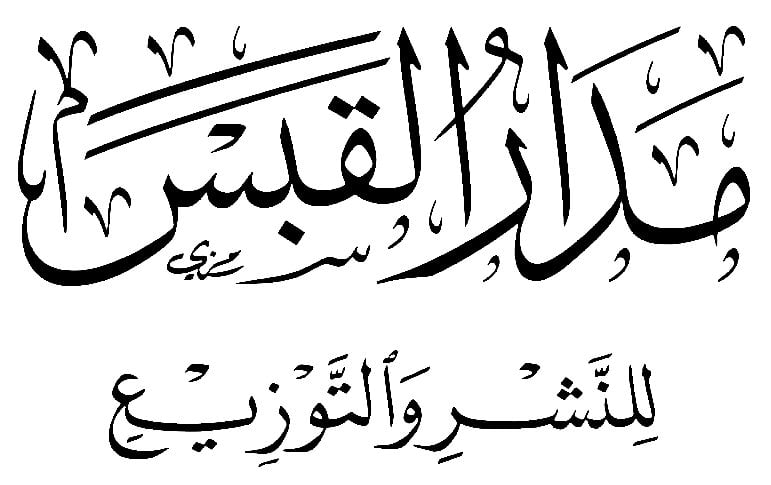 مَدَارُ القَبَس
لِلنَّشْرِ وَٱلتَّوْزِيعِ